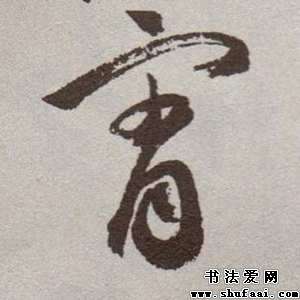 宵
书法爱网
www.shufaai.com